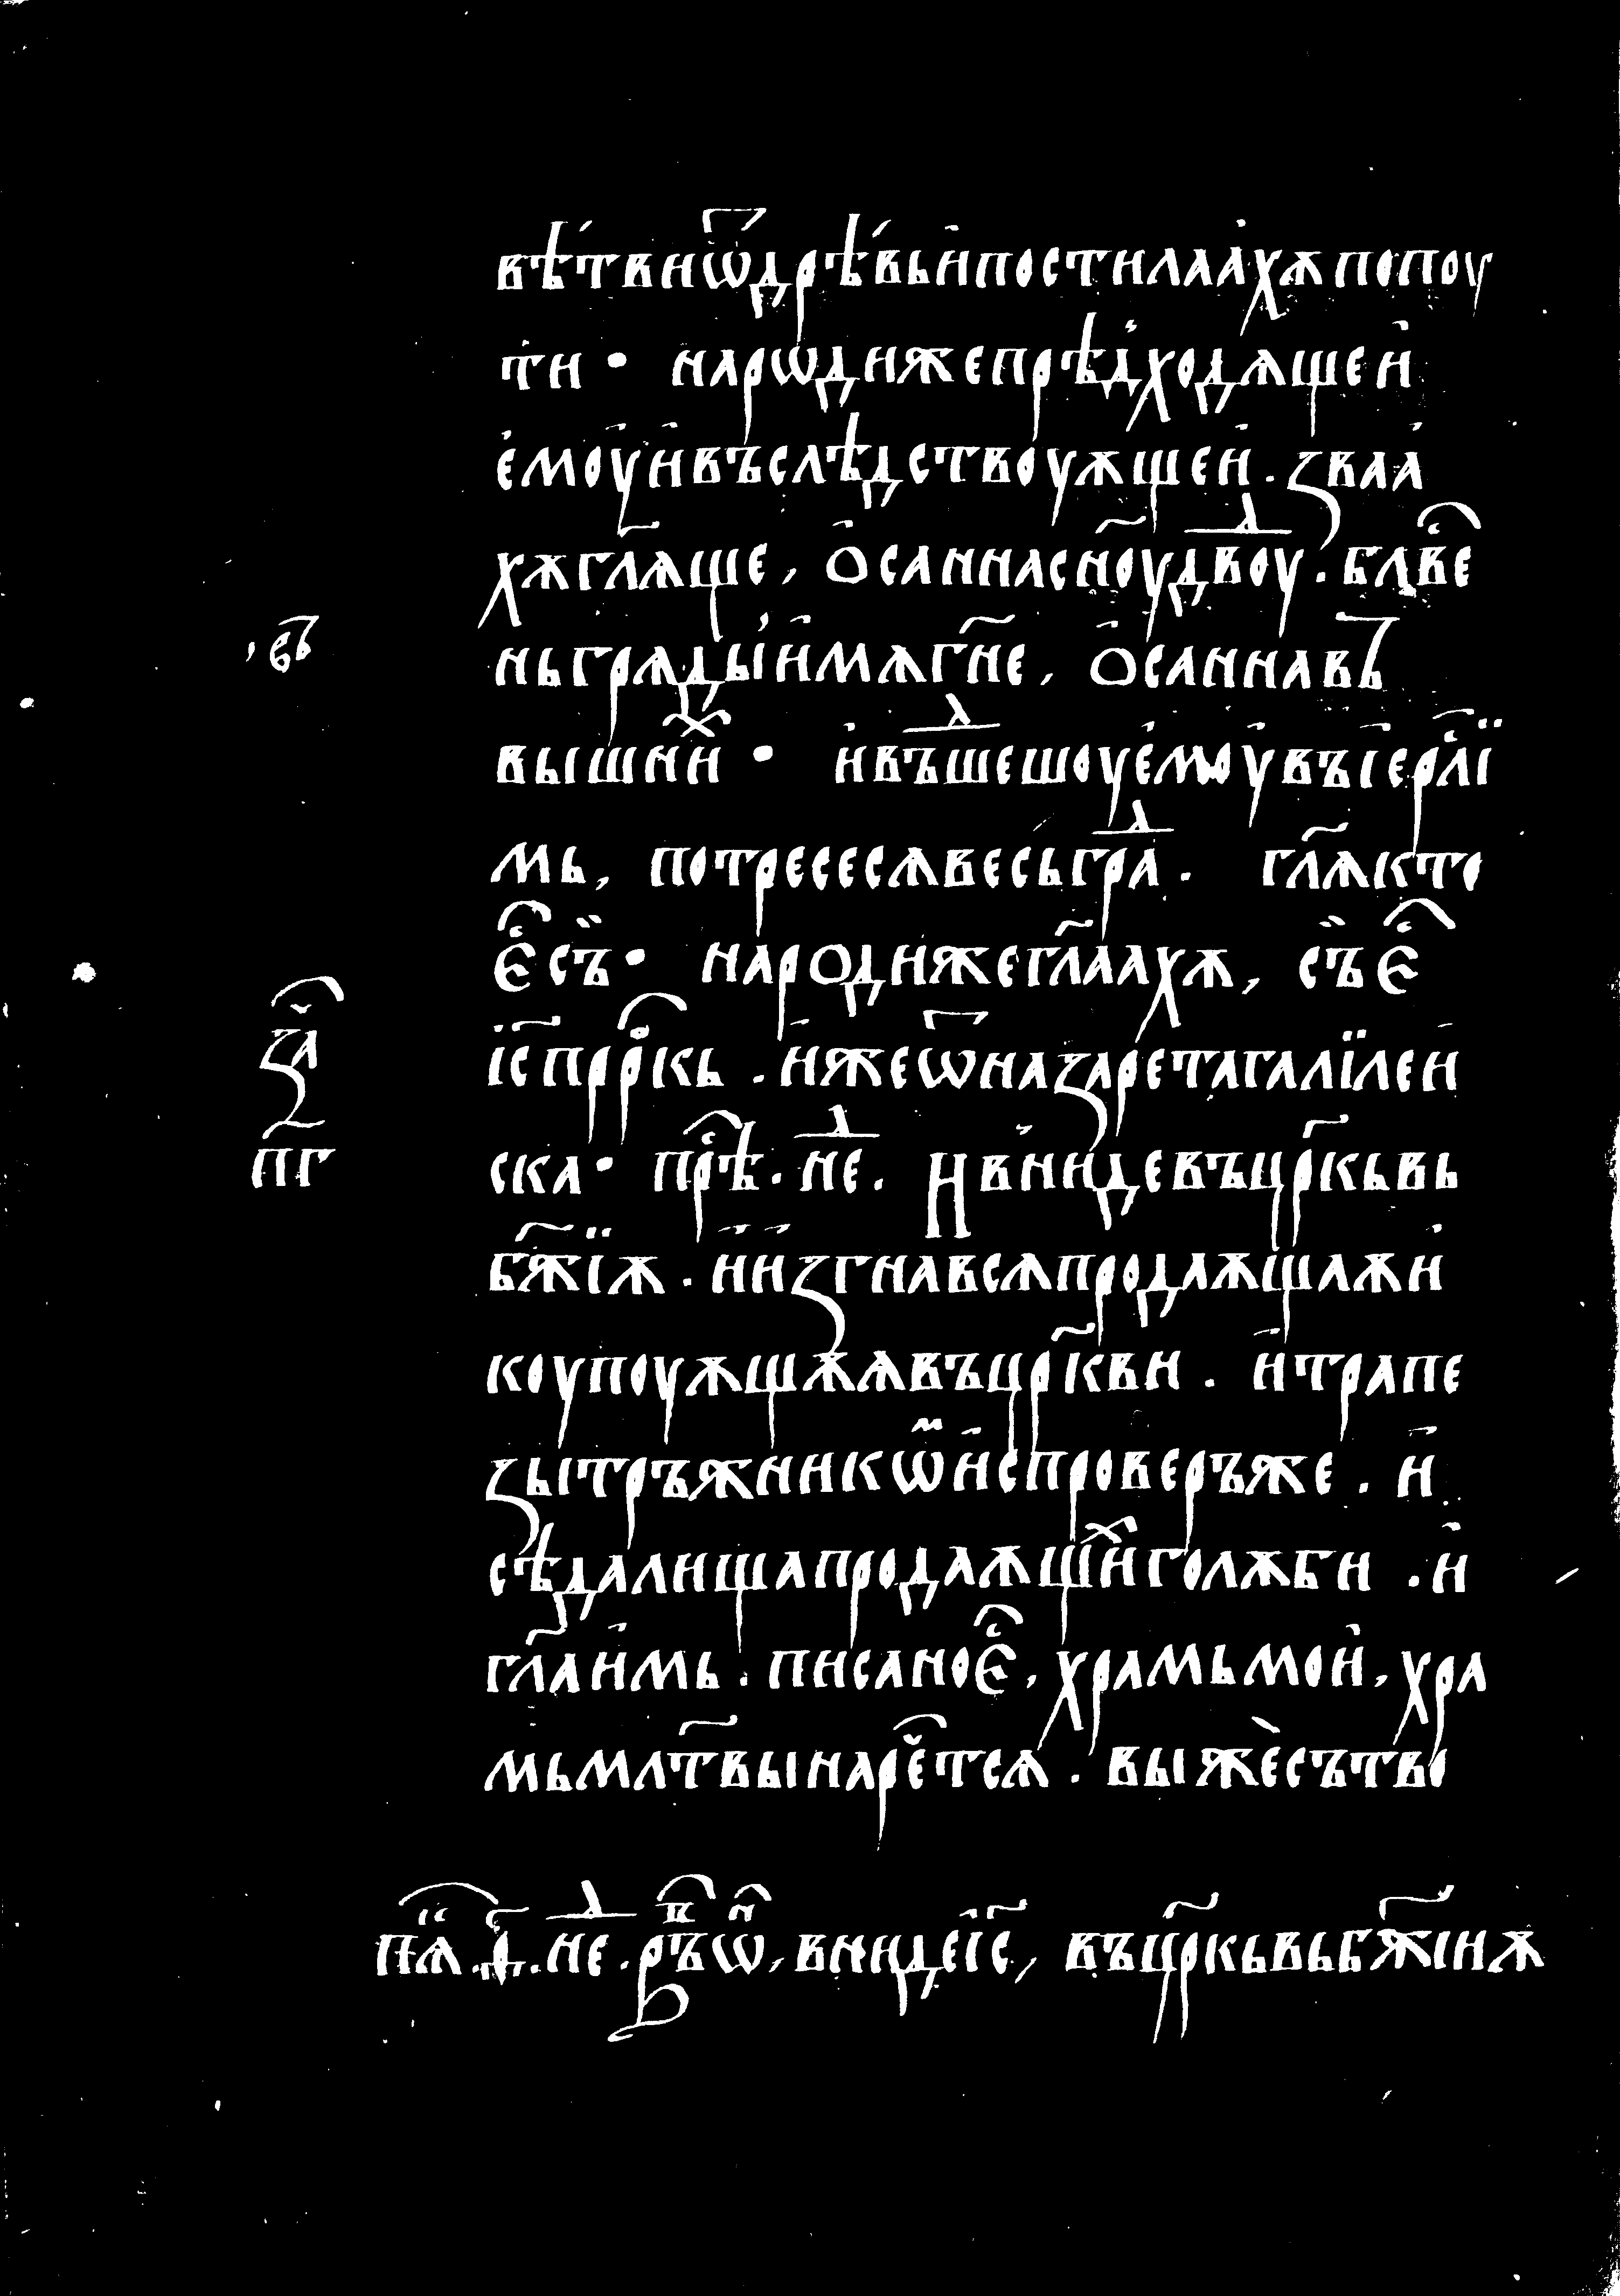 вѣ́тви ѿ дрѣ́вь и҆ постилаа҆хѫ по поу
ти • нарѡди же прѣдходѧщеи
е҆моу и҆ въслѣдствоуѫщеи҆ . ꙁваа
хѫ гл҃ѧще, о҆санна сн҃оу дв҃доу . блв҇е
нь грѧды и҆мѧ гн҃е, о҆санна въ
вышниⷯ • и҆ въⷲ҇шешоу е҆моу въ і҆ерⷭ҇лї
мь, потресесѧ весь граⷣ . гл҃ѧ кто
е҆ⷭ҇ съ • народи же гл҃аахѫ, съ е҆ⷭ҇
і҃с прⷪ҇ркь . и҆же ѿ наꙁарета галїлеи
ска • прⷭ҇ѣ . неⷣ . И в҆ниде въ цр҃кьвь
бж҃їѫ . и҆ и҆ꙁгна всѧ продаѫщаѫ и҆
коупоуѫщѫѧ въ цр҃кви . и҆ трапе
ꙁы тръжникѡⷨ и҆спроверъже . и҆
сѣдалища продаѫщїиⷯ голѫби . и҆
гл҃а и҆мь . писано е҆ⷭ҇, храмь мои҆, хра
мь млт҃вы нареⷱ҇тсѧ . вы же сътво
,єв
ꙁаⷱ҇
п҃г
пѧⷦ҇ . ҂і҃ . неⷣ . ръⷦ҇ ѡⷩ҇, вниде і҃с, въ цр҃кьвь бж҃іиѫ